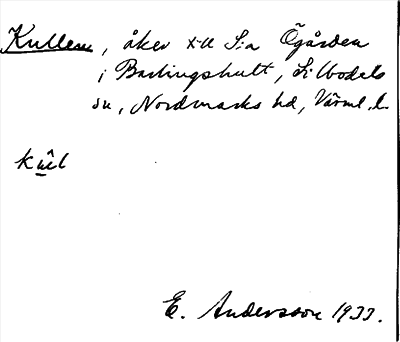 Kullen, åker t.ll S:a Ögården
i Bastingshult, Silbodals
sn, Nordmarks hd, Värml. l.
kûl
E. Andersson 1933.